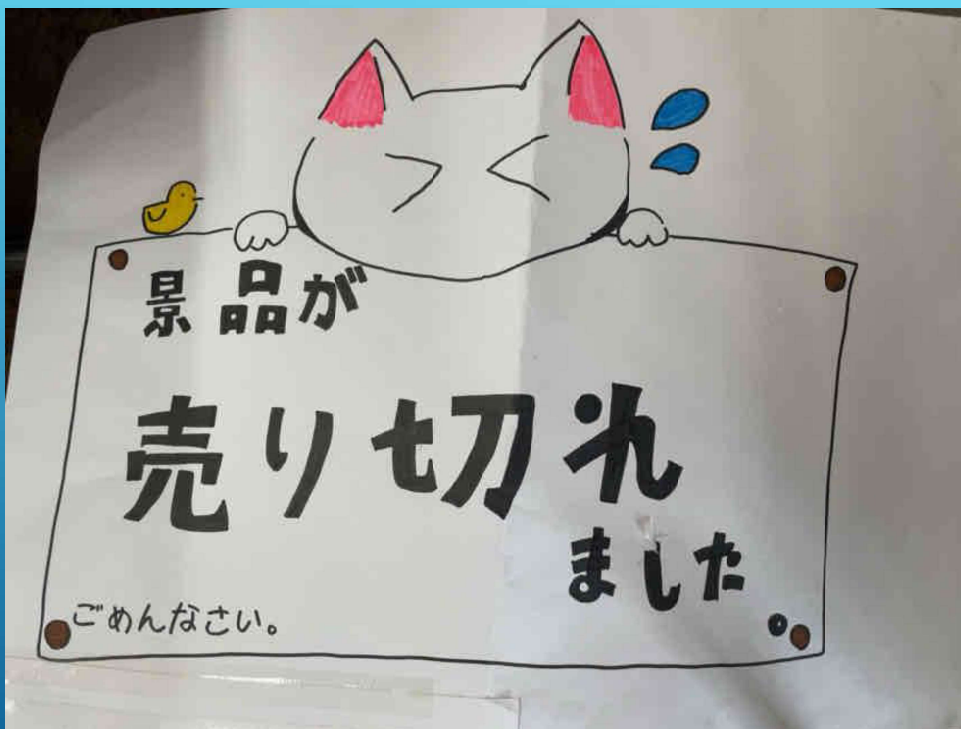 景品が
売り切れ
ました。
ごめんなさい。